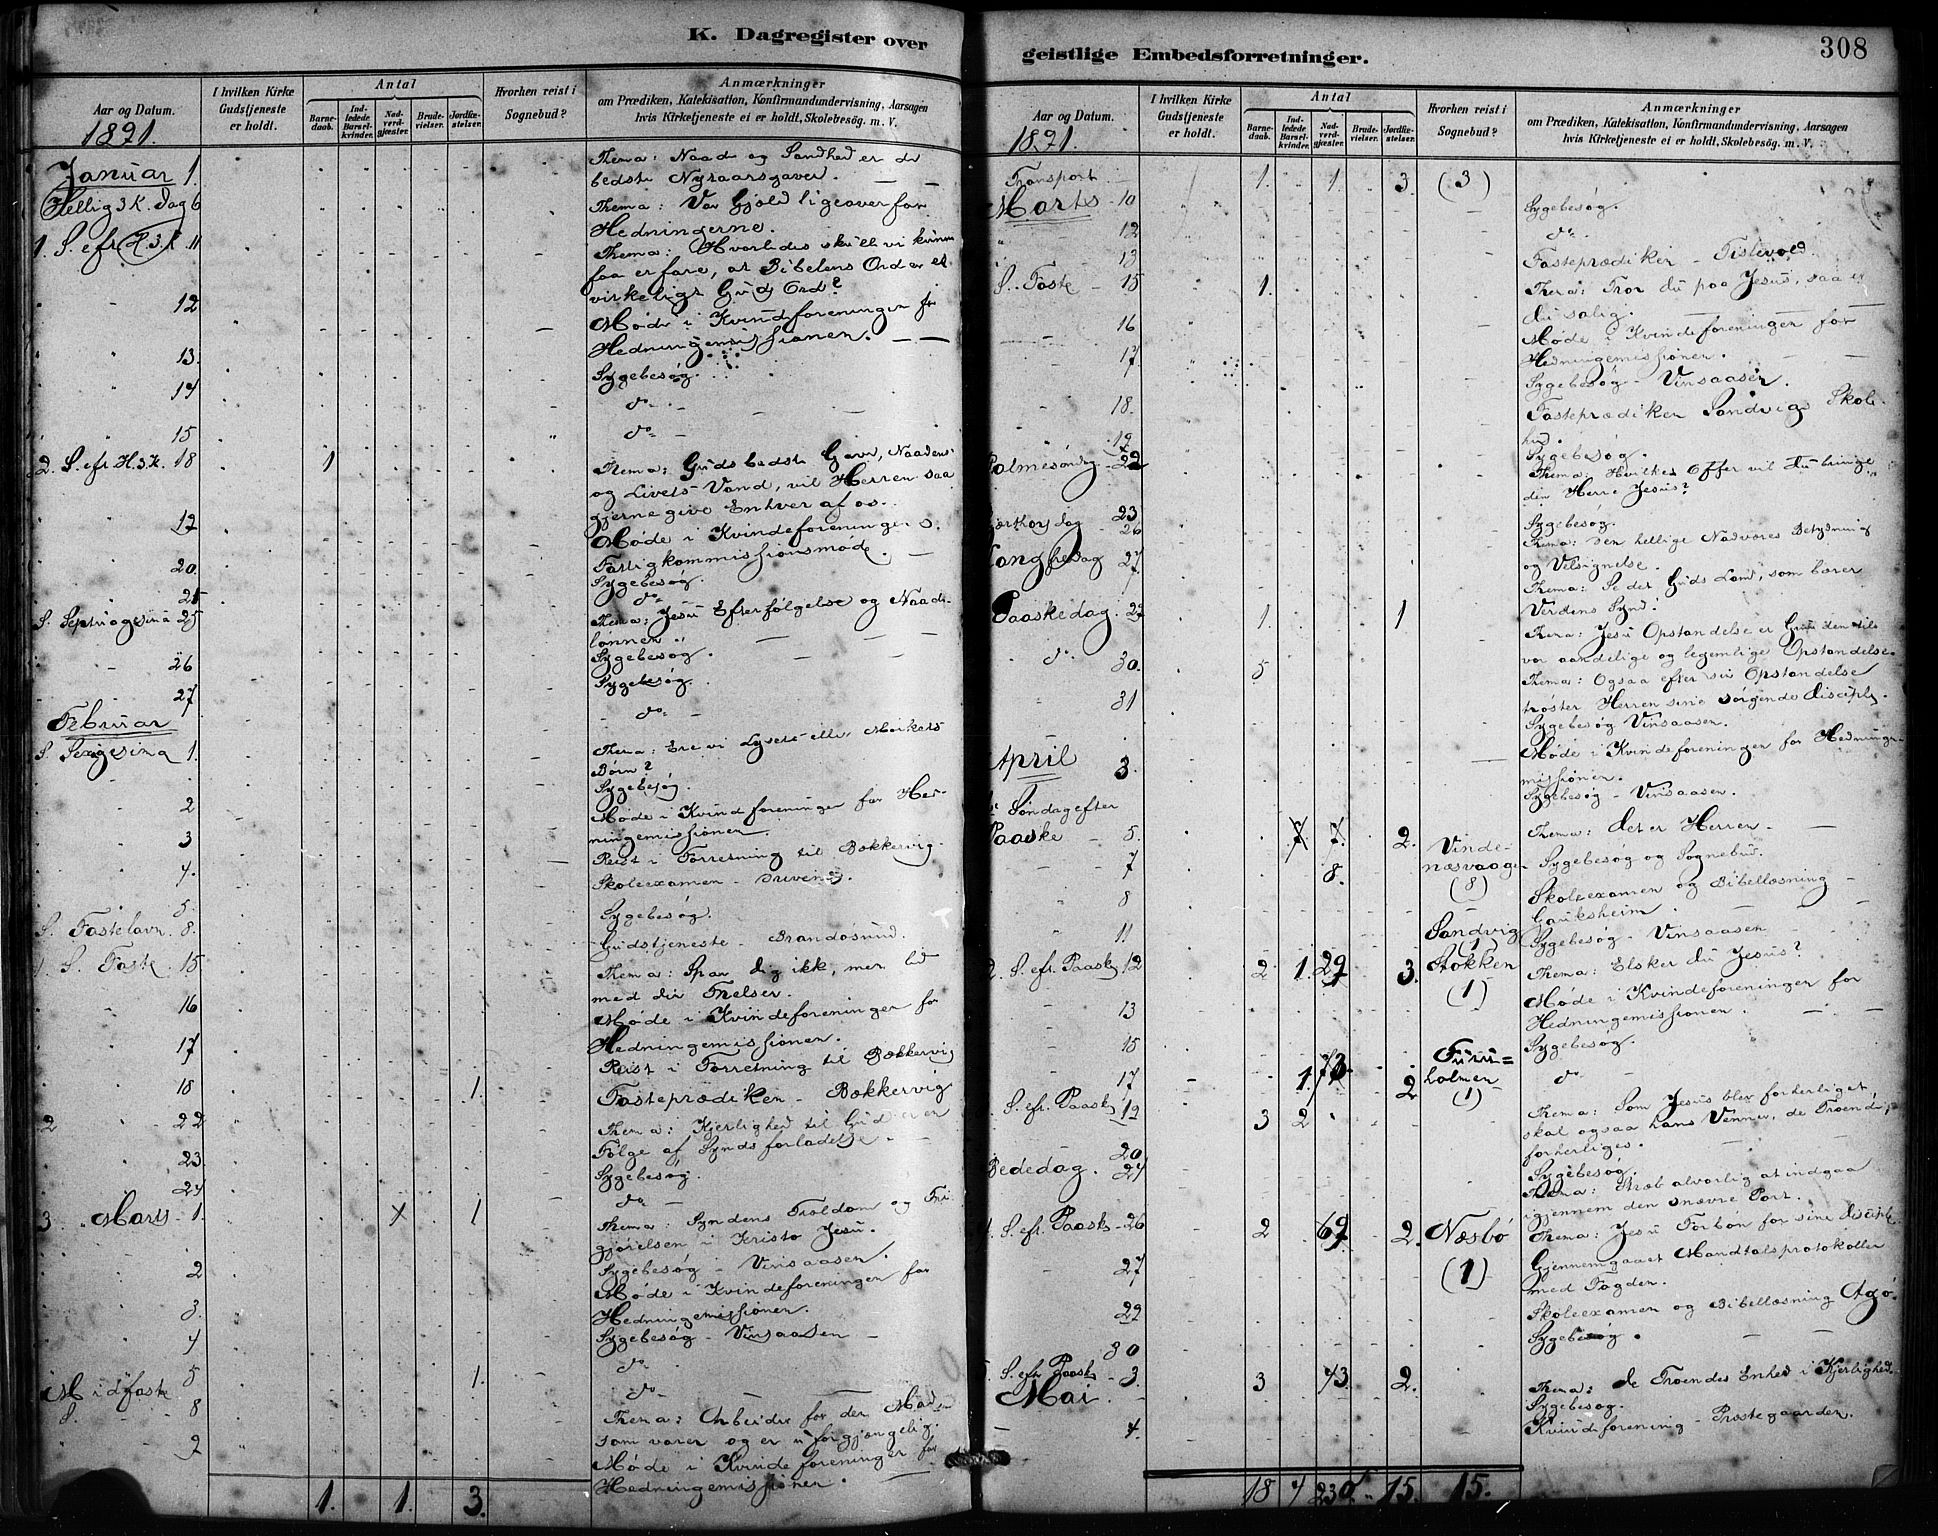 K. Dagregister over
Aar og Datum.
1891.
I hvilken Kirke Gudstjeneste er holdt.
Antal
Barnedaab.
Indledede Barselkvinder.
Nadverdgjæster.
Brudevielser.
Jordfæstelser.
Hvorhen reist i Sognebud?
Anmærkninger
om Prædiken, Katekisation, Konfirmandundervisning, Aarsagen
hvis Kirketjeneste ei er holdt, Skolebesög. m. V.
Januar 1. Thema: Naade og Sandhed er de
bedste Nytaarsgaver.
Hellig 3 K. Dag 6 Thema: Vor Gjæld ligeoverfor
Hedningerne.
1. S. eft H. 3. K. 11 Thema: Hvorledes skulle vi kunne
faa erfare, at Bibelens Ord er et
virkeligt Guds Ord?
12 Møde i Kvindeforeningen for
Hedningemissionen.
13. Sygebesøg.
14 do
15 do
2. S. eft H. 3. K. 18 1 Thema: Guds bedste Gave, Naadens
og Livets Vand, vil Herren saa
gjerne give Enhver af os.
19 Møde i Kvindeforeningen
Fattigkommissionsmøde.
20. Sygebesøg.
do
S. Septuagesima 25 Thema: Jesu Efterfølgelse og Naade-
lønnen.
26 Sygebesøg.
27 Sygebesøg.
do
Februar
S. Sexagesima 1. Thema: Ere vi Lysets eller Mørkets
Børn?
Sygebesøg.
2 Møde i Kvindeforeningen for Hed-
ningemissionen.
3 Reist i Forretning til Bækkervig.
4. Skoleexamen
5. Sygebesøg.
S. Fastelavn. 8. Gudstjeneste Brandasund.
1. S. Faste. 15 Thema: Spar dig ikke, men lid
med din Frelser.
16 Møde i Kvindeforeningen for
Hedningemissionen.
17 Reist i Forretning til Bækkervig
18 1. Fasteprædiken - Bækkervig
2 22 Thema: Kjerlighed til Gud er en
Følge af Synds forladelse.
23. Sygebesøg.
24 do
3. Marts 1. 1 Thema: Syndens Trældom og Fri-
gjørelsen i Kristo Jesu.
Sygebesøg - Vinsaasen.
2 Møde i Kvindeforeningen for
Hedningemissionen.
3. Sygebesøg - Vinsaasen
4 do
5 1. do
Midfaste
S. 8 Thema: Arbeider for den Mad
som varer og er uforgjængelig.
9 Møde i Kvindeforeningen for
Hedningemissionen.
1. 1. 3.
geistlige Embedsforretninger.
308
Aar og Datum.
1891.
I hvilken Kirke Gudstjeneste er holdt.
Antal
Barnedaab.
Indledede Barselkvinder.
Nadverdgjæster.
Brudevielser.
Jordfæstelser.
Hvorhen reist i Sognebud?
Anmærkninger
om Prædiken, Katekisation, Konfirmandundervisning, Aarsagen
hvis Kirketjeneste ei er holdt, Skolebesög. m. V.
Transport 1. 1. 3. (3)
Marts 10 Sygebesøg.
12 do
13 Fasteprædiken - Tislevold.
S. Faste 15 1. Thema: Tror du paa Jesus, saa er
du salig.
16 Møde i Kvindeforeningen for
Hedningemissionen.
17 Sygebesøg - Vinsaasen.
18. Fasteprædiken Sandvigs Skole-
hus.
19 Sygebesøg.
Palmesøndag 22 Thema: Hvilket Offer vil du bringe
den Herre Jesus?
23 Sygebesøg.
Skjærthorsdag 26 Thema: Den hellige Nadveres Betydning
og Velsignelse.
Langfredag 27 Thema: Se det Guds Lam, som bærer
Verdens Synd!
Paaskedag. 29 1. 1 Thema: Jesu Opstandelse er Grunden til
vor aandelige og legemlige Opstandelse.
do 30. 5 Thema: Ogsaa efter sin Opstandelse
trøster Herren sine sørgende disciple.
31 Sygebesøg Vinsaasen.
Møde i Kvindeforeningen for Hedninge-
missionen.
April 3. Sygebesøg - Vinsaasen.
Søndag efter
Paaske 5. 2. Thema: Det er Herren.
7 8. Vinde-
næsvaagen
(8) Sygebesøg og Sognebud.
8 Skoleexamen og Bibellæsning
Gauksheim.
11 Sandvig
(1) Sygebesøg - Vinsaasen
2. S. eft. Paaske 12 2 1. 29 3. Stokken
(1) Thema: Elsker du Jesus?
13 Møde i Kvindeforeningen for
Hedningemissionen.
15 Sygebesøg.
17 1. 73. 2 Furu=
holmen
(1) do
S. eft. Paaske 19 3 2 Thema: Som Jesus blev forherliget
skal ogsaa hans Venner, de Troende,
forherliges.
20 Sygebesøg.
Bededag. 24 Thema: Stræb alvorlig at indgaa
igjennem den snævre Port.
4. S. eft. Paaske 26 2 69. 2. Næsbø
(1) Thema: Jesu Forbøn for sine disciple
27 Gjennemgaaet Mandtalsprotokoller
med Fogden.
29 Skoleexamen og Bibellæsning Agø.
30 Sygebesøg.
S. eft Paaske 3. 3 43. 2. Thema: de Troendes Enhed i Kjerlighed.
Mai Sygebesøg.
4. Kvindeforening - Prestegaarden.
18 7 230 15. 15.